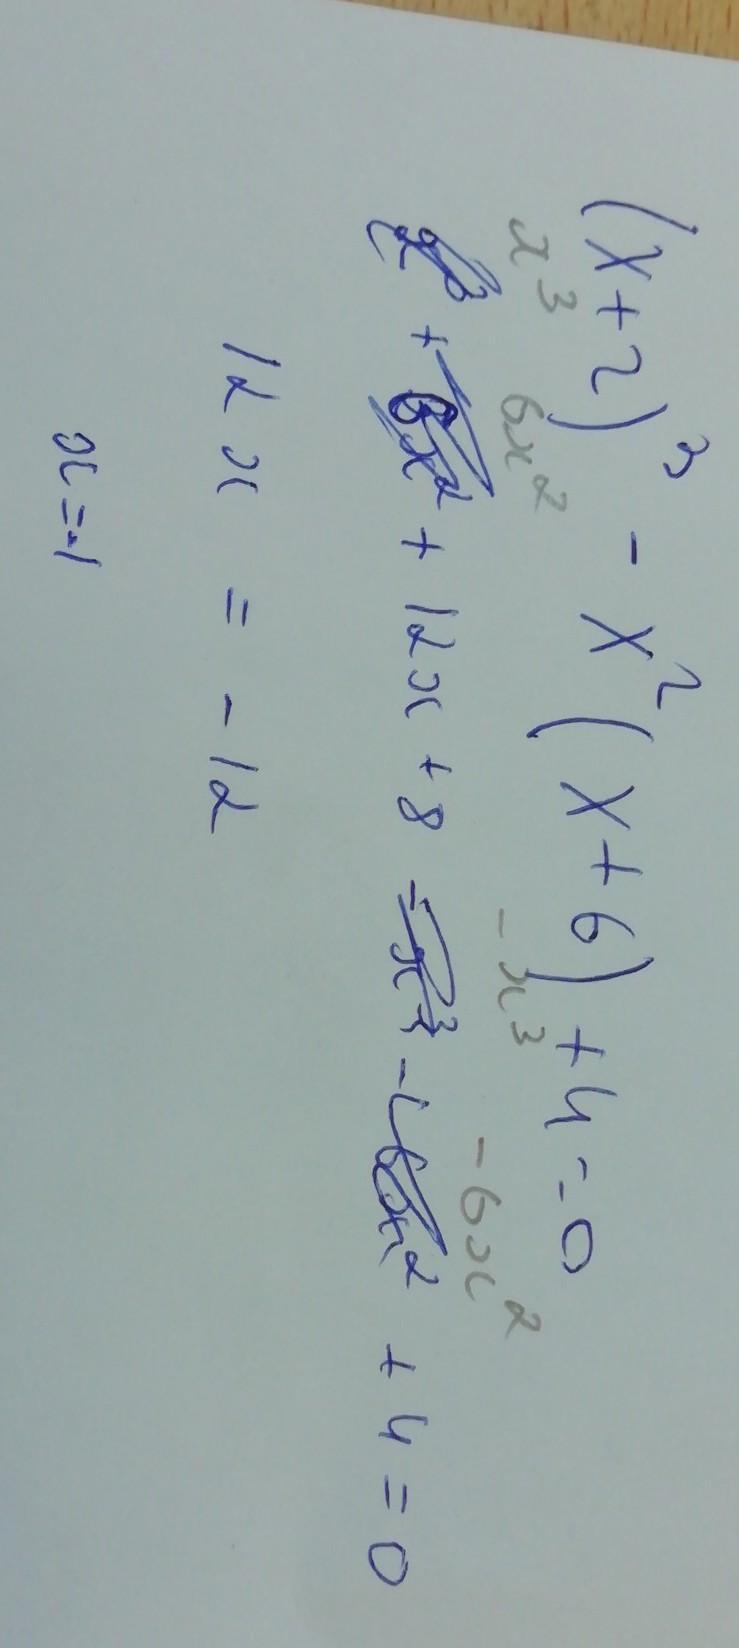 (x+2)³ - x²(x+6) + 4 = 0
x³ 6x² -x³ -6x²
x³ + 6x² + 12x + 8 - x³ - 6x² + 4 = 0
12x = -12
x = -1